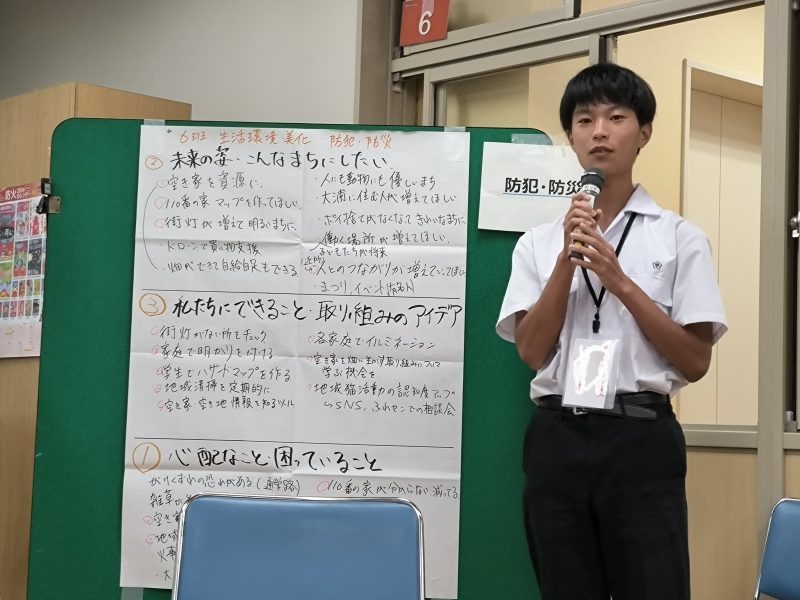 6
6班 生活環境・美化 防犯・防災
② 未来の姿・こんなまちにしたい
空き家を資源に。
110番の家マップを作ってほしい。
街灯が増えて明るいまちに
・ドローンで買い物支援
・畑ができて自給自足もできる
・人にも動物にも優しいまち
・大浦に住む人が増えてほしい。
・ポイ捨てがなくなってきれいなまちに
・働く場所が増えてほしい。
子どもたちが将来
人とのつながりが増えていてほしい
・まつり、イベント
③ 私たちにできること・取り組みのアイデア
街灯がない所をチェック
家庭で明かりを付ける
学生でハザードマップを作る
地域清掃を定期的に
空き家 空き地情報を知るツール
各家庭でイルミネーション
空き家を畑に生かす取り組みについて
学ぶ機会を
地域猫活動の認知度アップ
SNS、ふれセンでの相談会
① 心配なこと・困っていること
がけくずれの恐れがある(通学路)
雑草が
空き家
地域
火事
・大
110番の家が分からない 減ってる
防犯・防災
防火